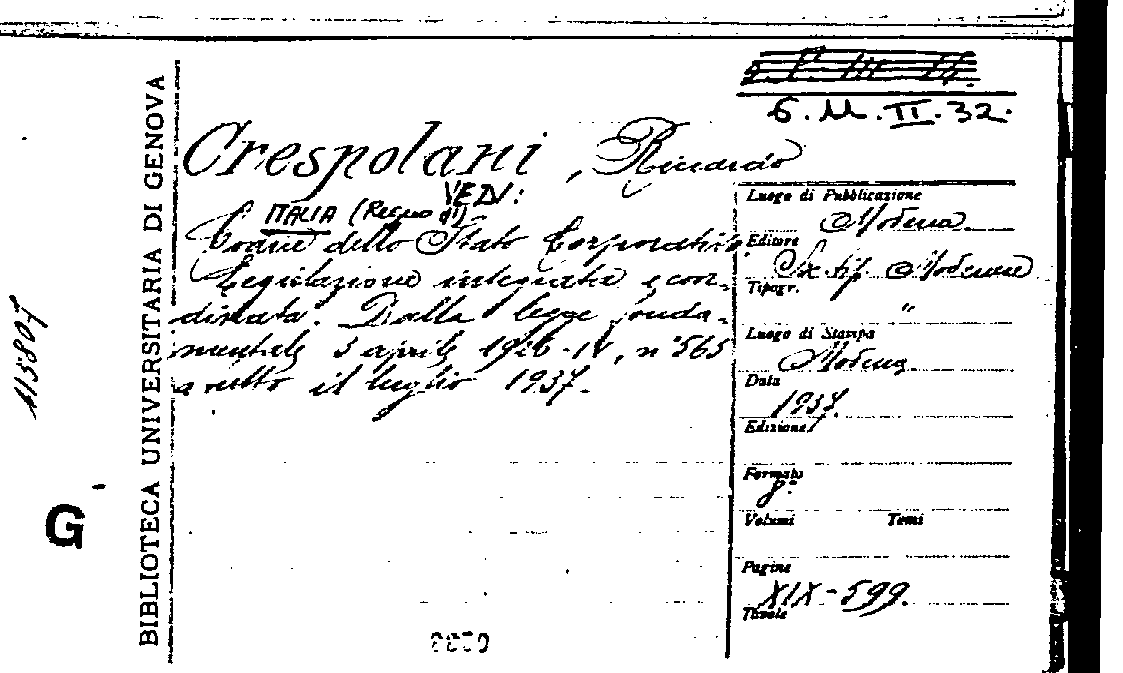 6.M.II.32.
Crespolani, Riccardo
VEDI:
ITALIA (Regno di)
Codice dello Stato Corporativo
Legislazione integrata e coor-
dinata. Dalla legge fonda-
mentale 3 aprile 1926-IV, n° 563
a tutto il luglio 1937.
Luogo di Pubblicazione
Modena
Editore
Soc. tip. Modenese
Tipogr.
"
Luogo di Stampa
Modena
Data
1937.
Edizione
Formato
8°
Volumi Tomi
Pagine
XIX-599.
Tavole
BIBLIOTECA UNIVERSITARIA DI GENOVA
113807
G